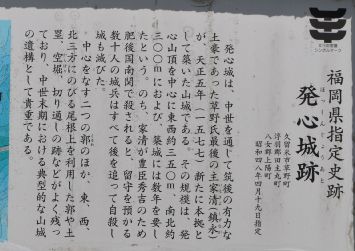 文化財愛護
シンボルマーク
福岡県指定史跡
発心城跡
久留米市草野町
浮羽郡田主丸町
八女郡上陽町
昭和四八年四月十九日指定
発心城は、中世を通して筑後の有力な
土豪であった草野氏最後の主家清(鎮永)
が、天正五年(一五七七)新たに本拠と
して築いた山城である。その規模は、発
心山頂を中心に東西約三五〇m、南北約
三〇〇mにおよび、築城には数年を要し
たという。のち、家清が豊臣秀吉のため
肥後国南関で殺されると、留守を預かる
数十人の城兵はすべて後を追って自殺し
城も滅びた。
中心をなす二つの郭のほか、東、西、
北三方にのびる尾根上を利用した郭や土
塁、空堀、切り通しの跡などがよく残っ
ており、中世末期における典型的な山城
の遺構として貴重である。